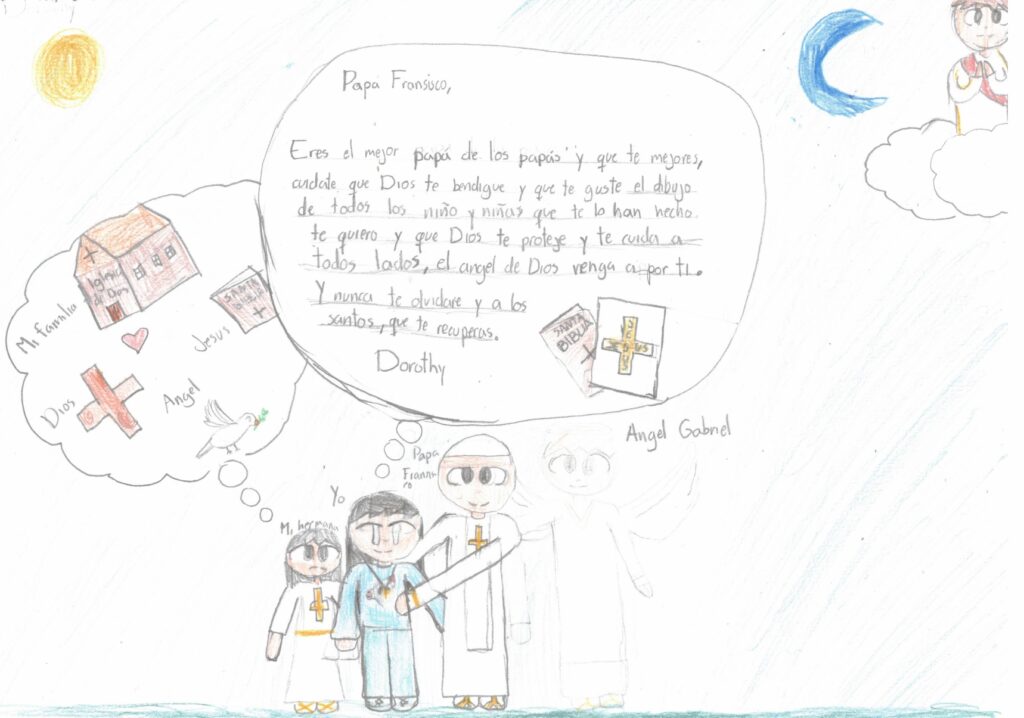 Papá Fransisco,
Eres el mejor papá de los papás y que te mejores,
cuidate que Dios te bendigue y que te guste el dibujo
de todos los niño y niñas que te lo han hecho
te quiero y que Dios te proteje y te cuida a
todos lados, el angel de Dios venga a por ti.
Y nunca te olvidare y a los
santos, que te recuperas.
Dorothy
SANTA
BIBLIA
JESUS
JESUS
Mi familia
Iglesia
de Dios
SANTA
BIBLIA
Jesus
Dios
Angel
Angel Gabriel
Papa
Yo
Mi hermana